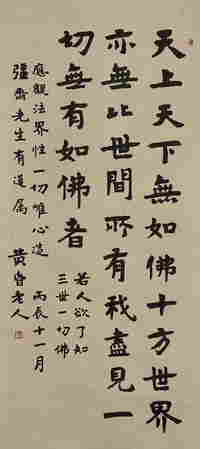 天上天下無如佛十方世界
亦無比世間所有我盡見一
切無有如佛者
若人欲了知
三世一切佛
應觀法界性一切唯心造 丙辰十一月
彊齋先生有道属 黄山老人